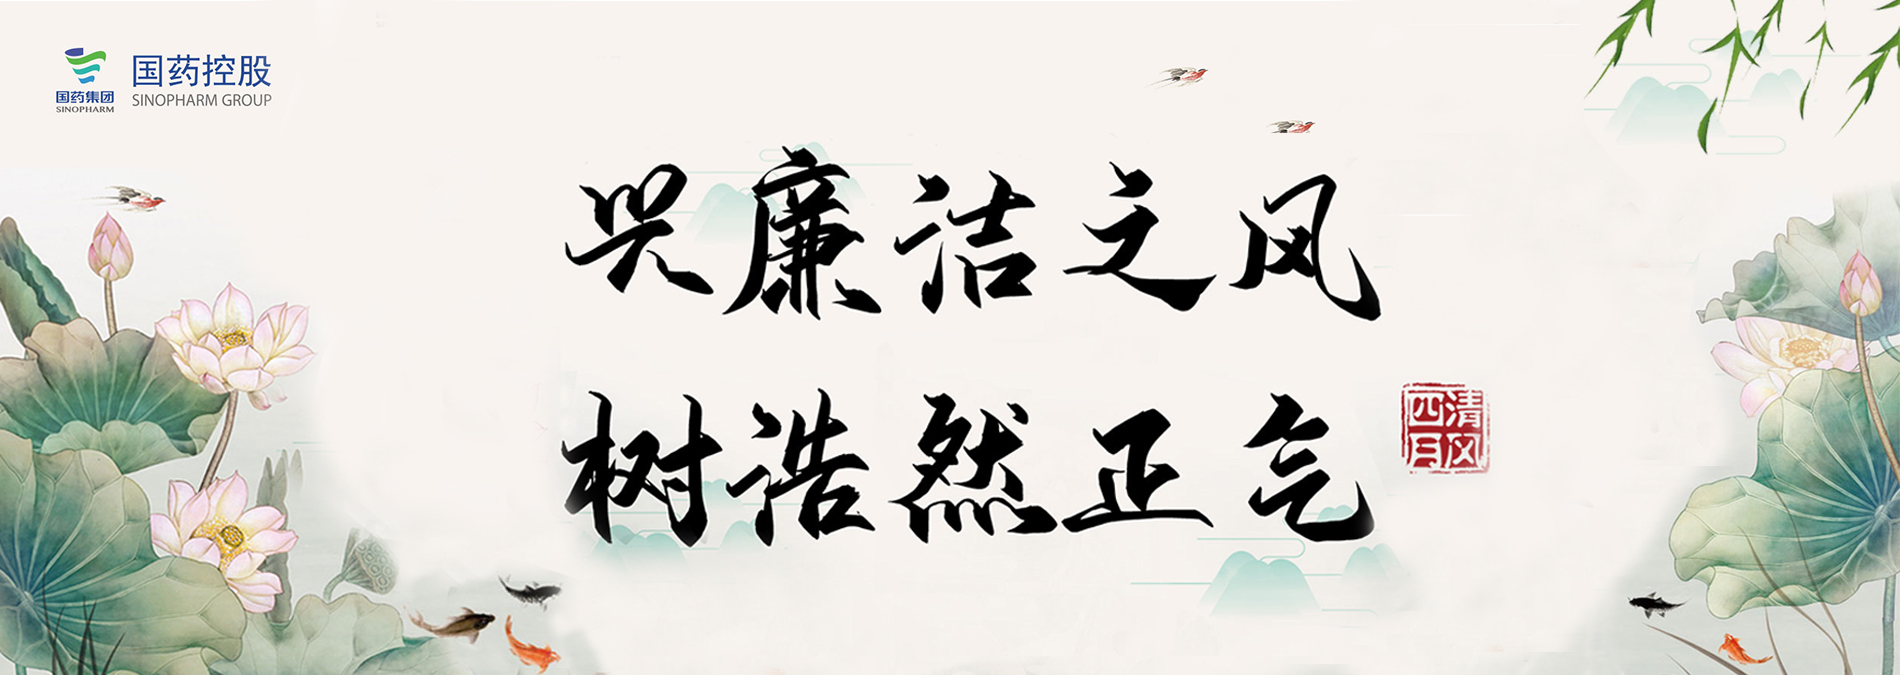 国药集团
SINOPHARM
国药控股
SINOPHARM GROUP
兴廉洁之风
树浩然正气
清风
四月